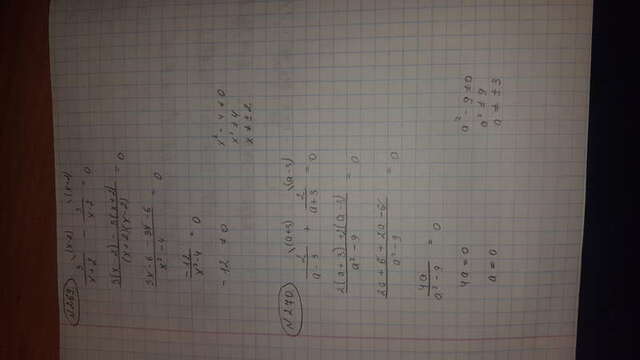 N 269
3/(x+2) \(x-2) - 3/(x-2) \(x+2) = 0
(3(x-2) - 3(x+2))/((x+2)(x-2)) = 0
(3x-6-3x-6)/(x²-4) = 0
-12/(x²-4) = 0
-12 ≠ 0
x²-4≠0
x²≠4
x≠±2
N 270
2/(a-3) \(a+3) + 2/(a+3) \(a-3) = 0
(2(a+3)+2(a-3))/(a²-9) = 0
(2a+6+2a-6)/(a²-9) = 0
4a/(a²-9) = 0
4a=0
a=0
a²-9≠0
a²≠9
a≠±3